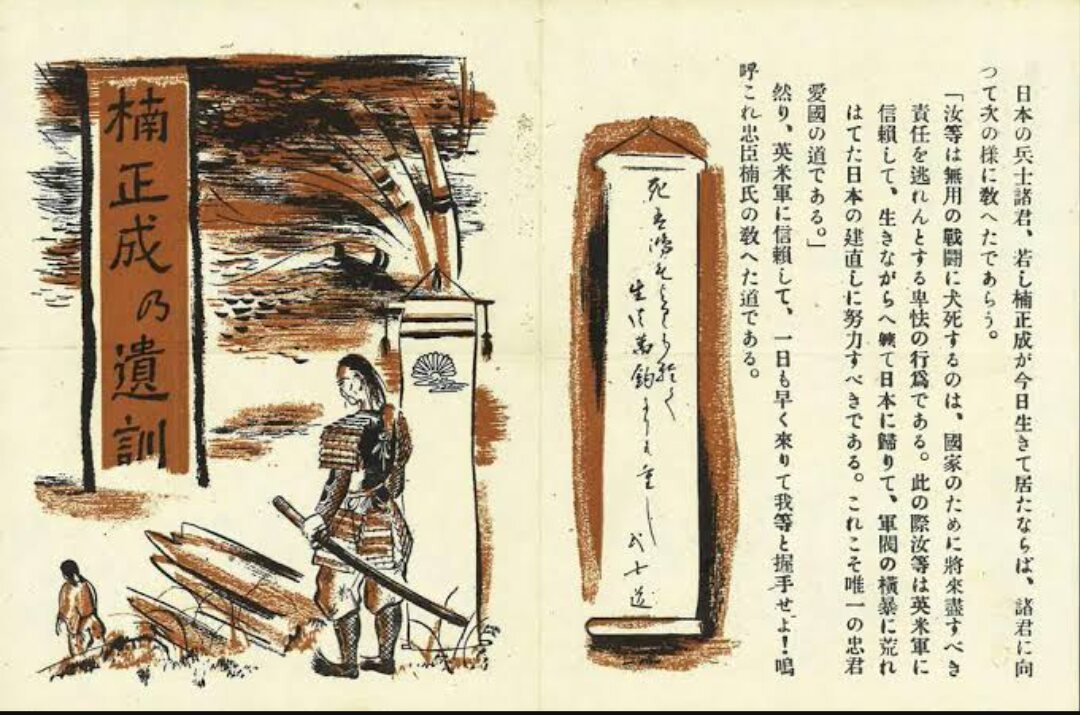 日本の兵士諸君、若し楠正成が今日生きて居たならば、諸君に向
つて次の様に敎へたであらう。
「汝等は無用の戰鬪に犬死するのは、國家のために將來盡すべき
責任を逃れんとする卑怯の行爲である。此の際汝等は英米軍に
信賴して、生きながらへ軈て日本に歸りて、軍閥の橫暴に荒れ
はてた日本の建直しに努力すべきである。これこそ唯一の忠君
愛國の道である。」
然り、英米軍に信賴して、一日も早く來りて我等と握手せよ！嗚
呼これ忠臣楠氏の敎へた道である。
死は鴻毛よりも軽く
生は萬鈞よりも重し
武士道
楠正成乃遺訓